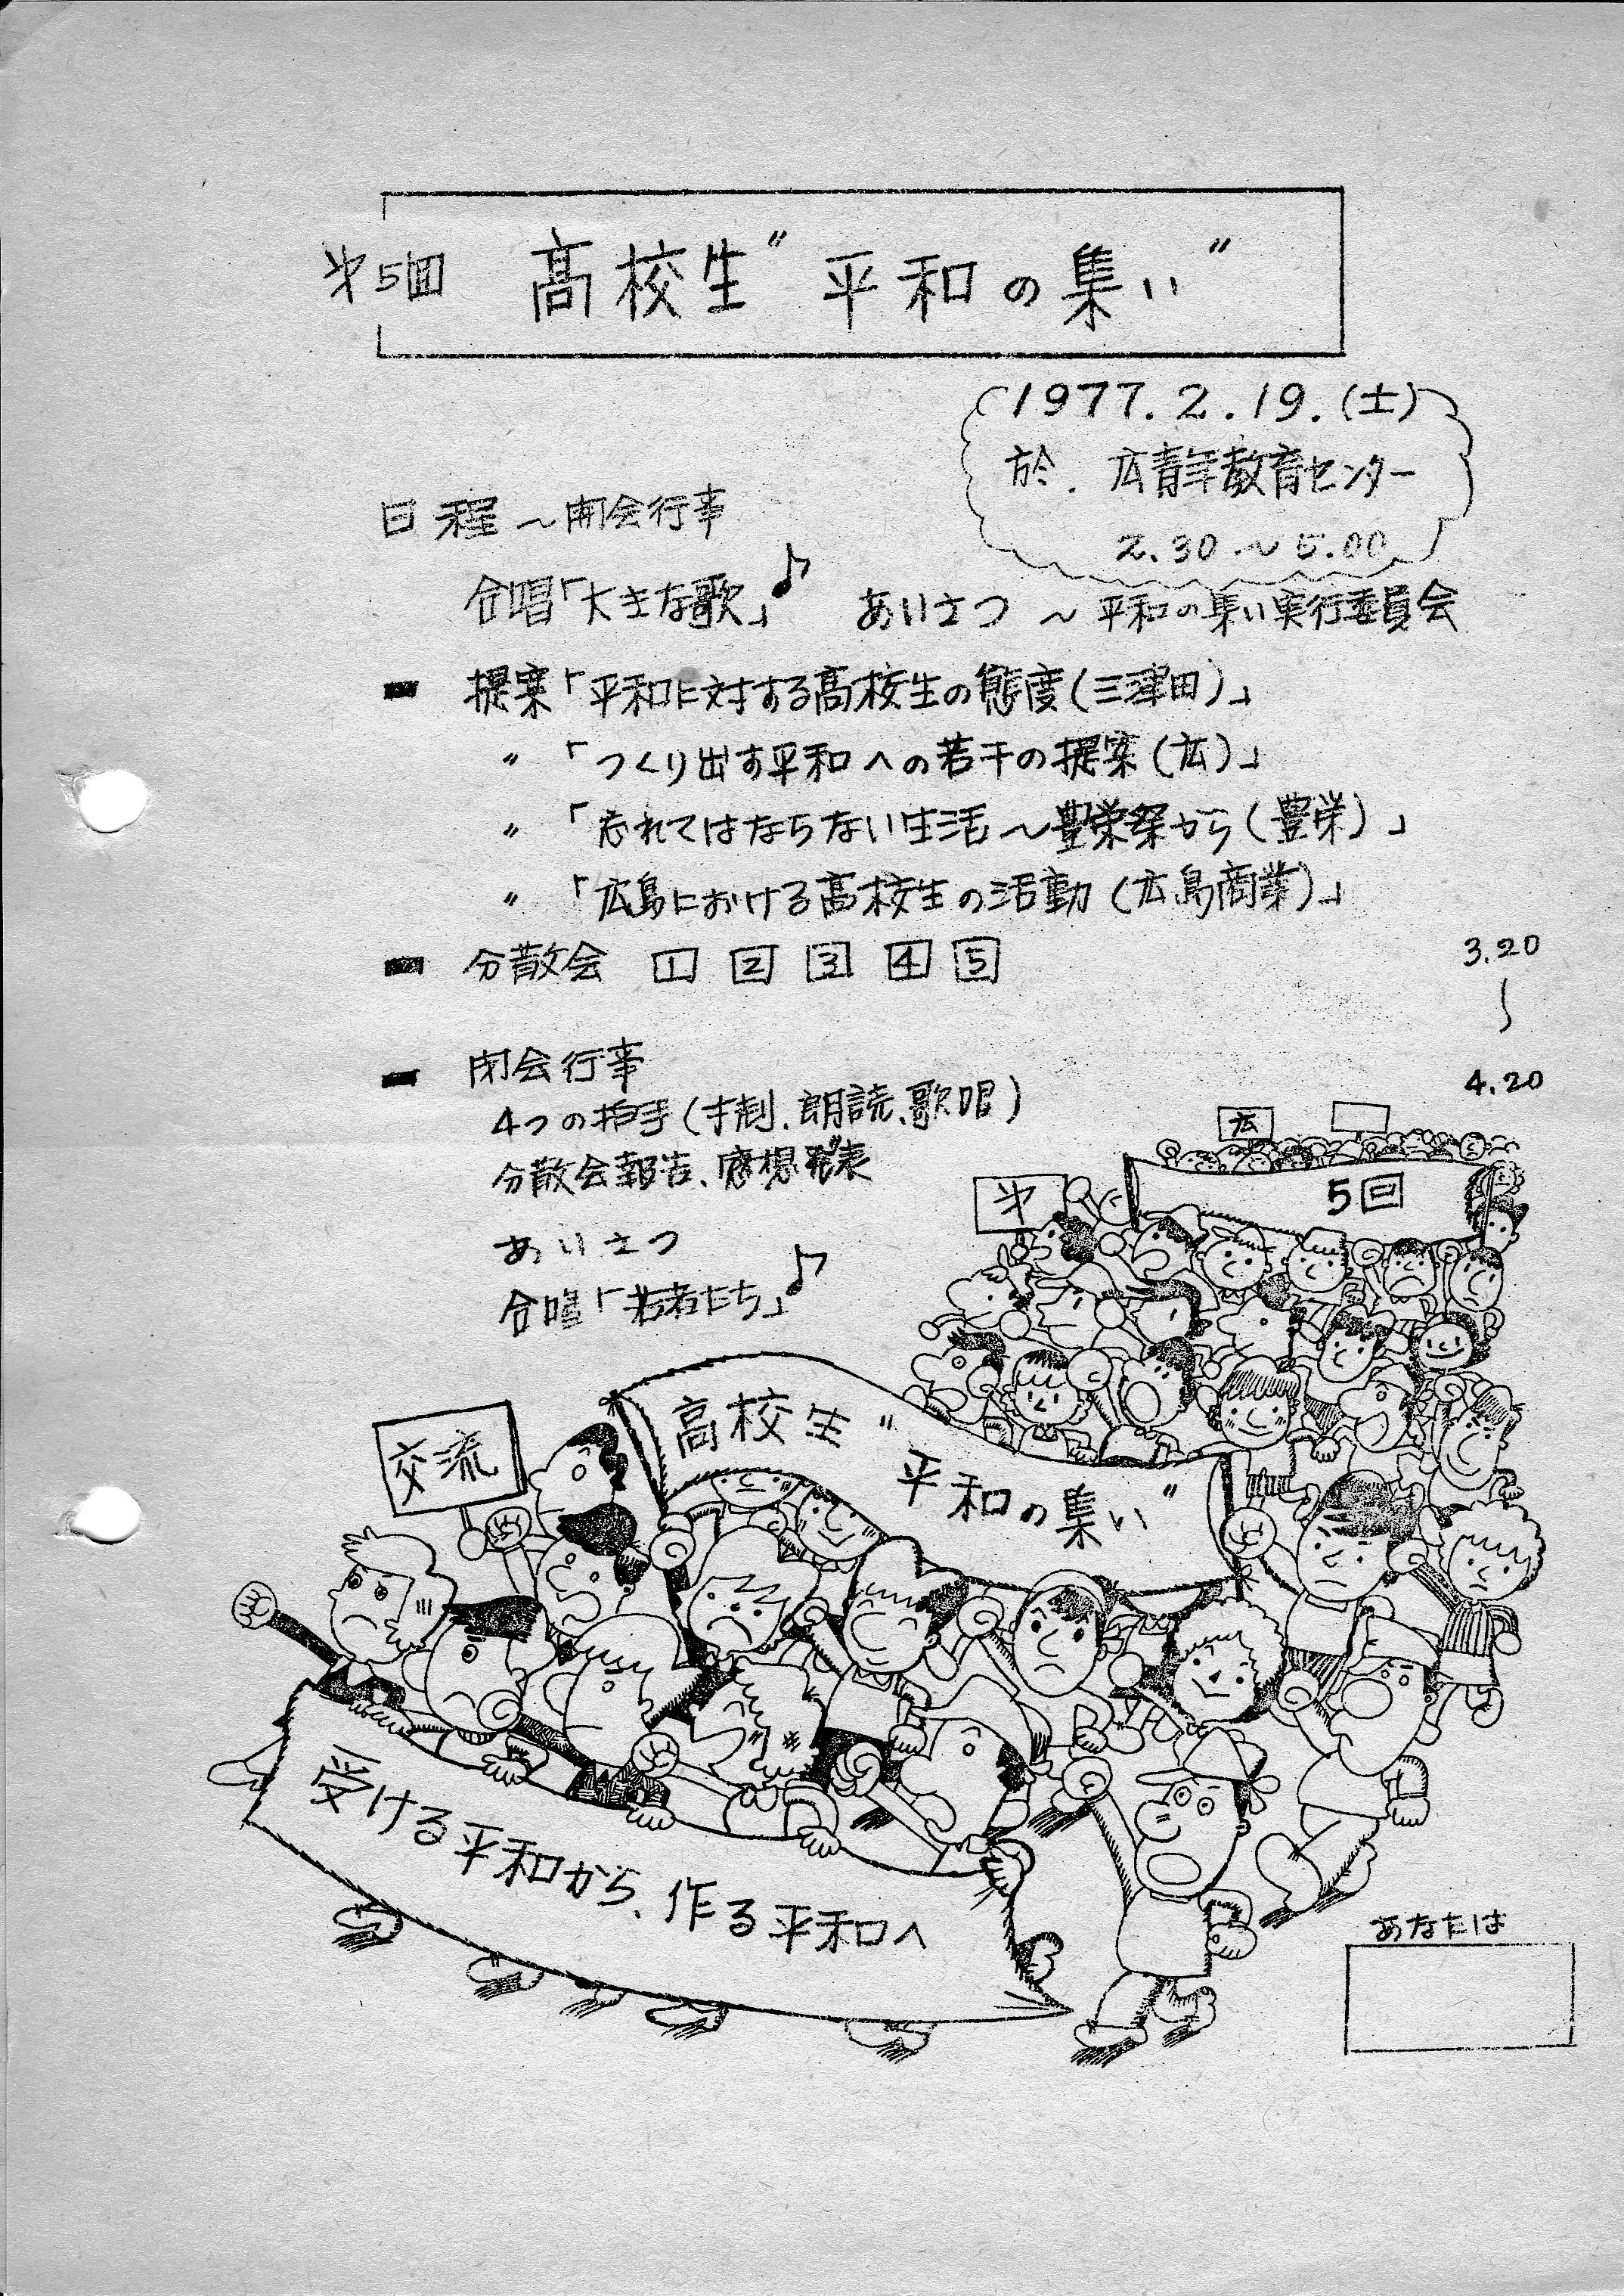 第5回 高校生“平和の集い”
1977.2.19.(土)
於. 広青年教育センター
2.30〜5.00
日程〜開会行事
合唱「大きな歌」♪ あいさつ 〜平和の集い実行委員会
提案「平和に対する高校生の態度(三津田)」
〃 「つくり出す平和への若干の提案(広)」
〃 「忘れてはならない生活〜豊栄祭から(豊栄)」
〃 「広島における高校生の活動(広島商業)」
分散会 1 2 3 4 5
3.20
〜
4.20
閉会行事
4つの拍手(才刺、朗読、歌唱)
分散会報告、感想発表
あいさつ
合唱「若者たち」♪
広
第
5回
交流
高校生“平和の集い”
受ける平和から、作る平和へ
あなたは